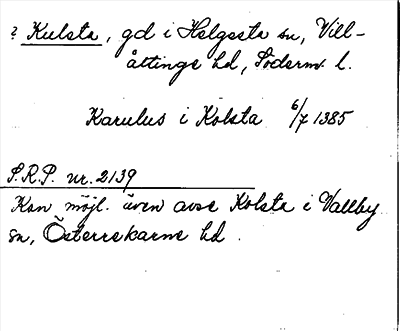 ? Kulsta, gd i Helgesta sn, Vill-
åttinge hd, Söderm. l.
Karulus i Kolsta 6/7 1385
S.R.P. nr. 2139
Kan möjl. även avse Kolsta i Vallby
sn, Österrekarne hd.